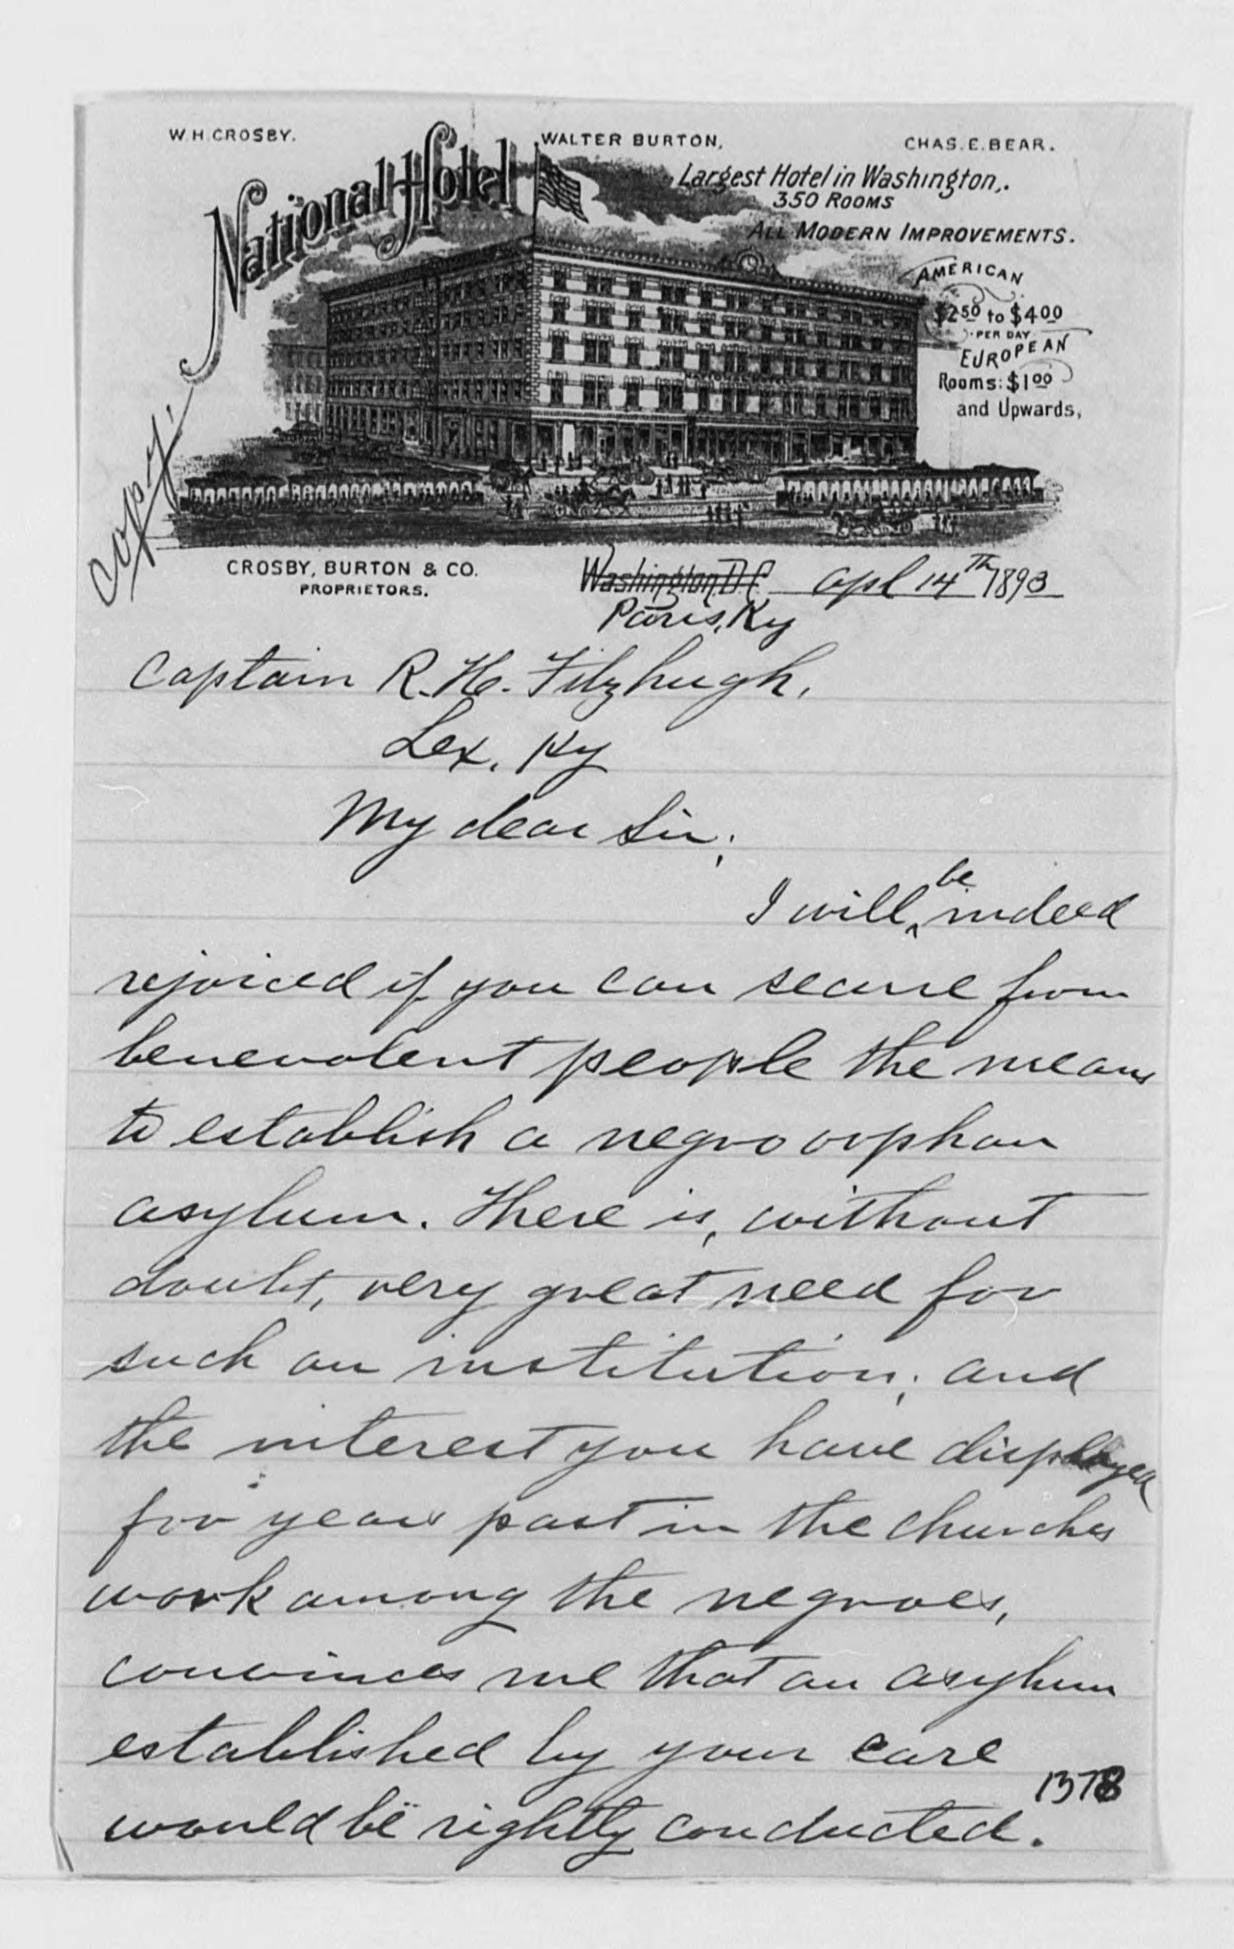 W.H. CROSBY.
WALTER BURTON,
CHAS. E. BEAR.
National Hotel
Largest Hotel in Washington,.
350 ROOMS
ALL MODERN IMPROVEMENTS.
AMERICAN
$2.50 to $4.00
PER DAY
EUROPEAN
Rooms: $1.00
and Upwards,
copy.
CROSBY, BURTON & CO.
PROPRIETORS.
Washington, D.C. Apl 14th 1893
Paris, Ky
Captain R. H. Fitzhugh,
Lex, Ky
My dear Sir;
I will be indeed
rejoiced if you can secure from
benevolent people the means
to establish a negro orphan
asylum. There is, without
doubt, very great need for
such an institution; and
the interest you have displayed
for years past in the churches
work among the negroes,
convinces me that an asylum
established by your care
would be rightly conducted.
1378